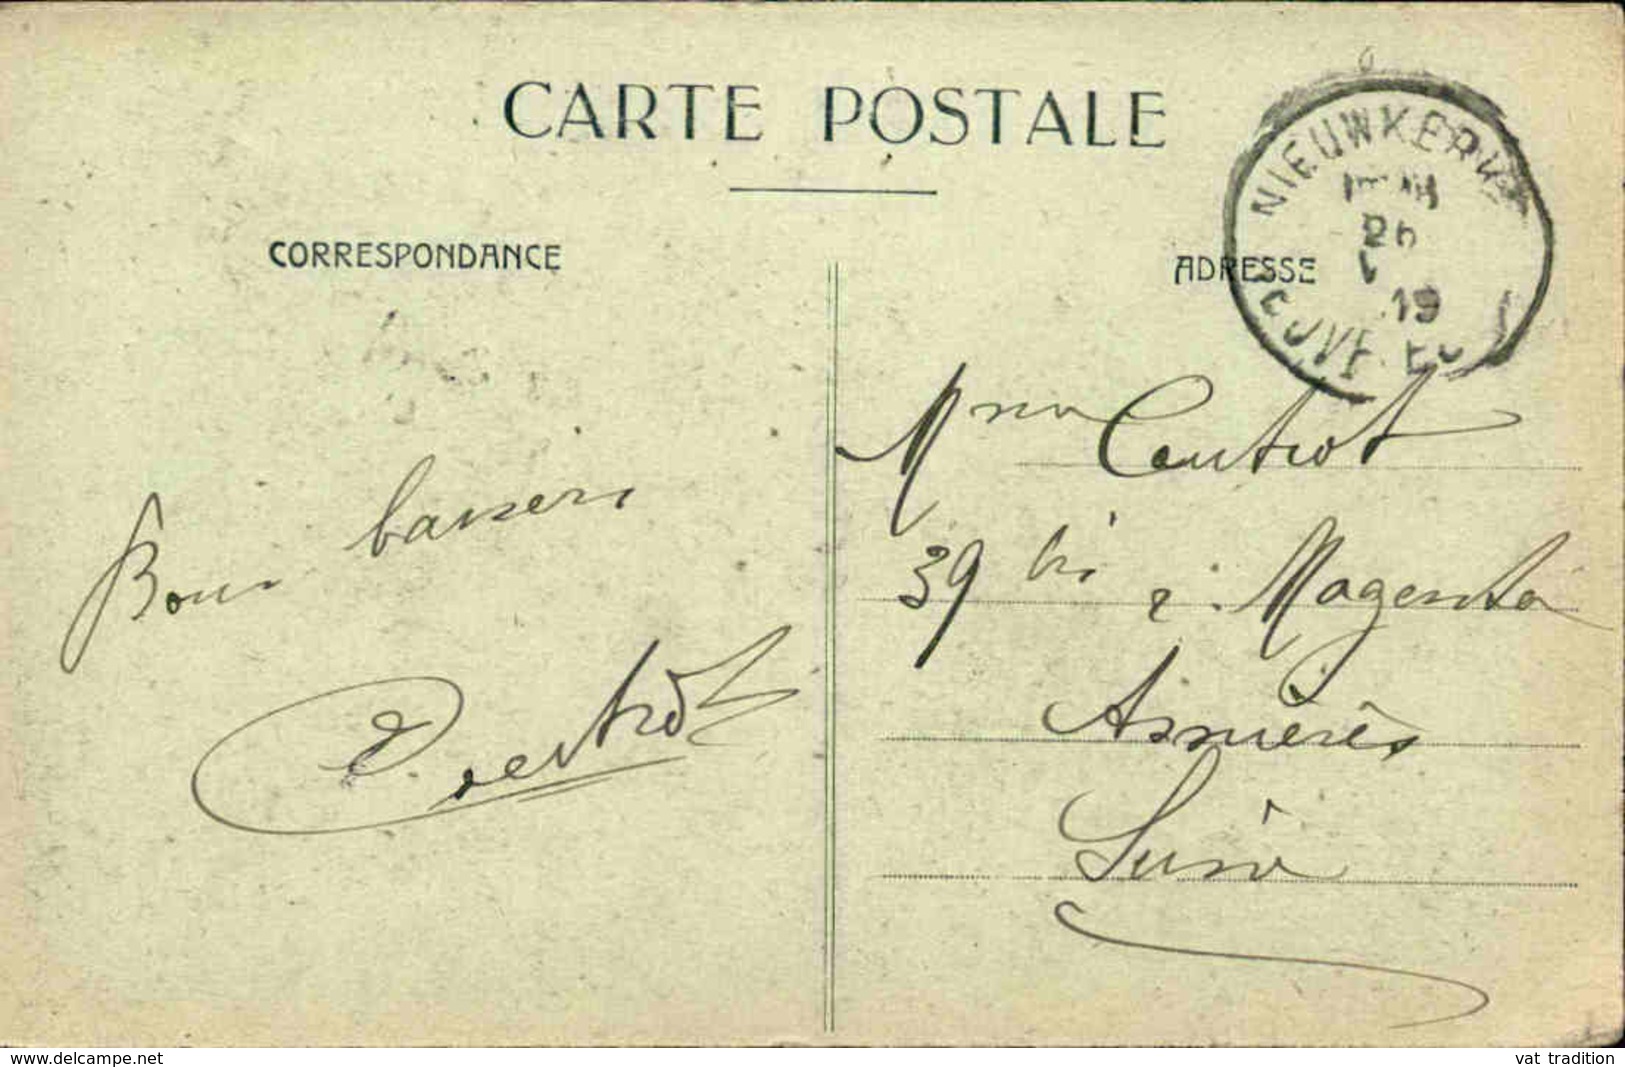 CARTE POSTALE
CORRESPONDANCE
ADRESSE
NIEUWKERK
19
Bons baisers
Mme Coutrot
39 bis r. Magenta
Asnières
Seine
www.delcampe.net
vat_tradition